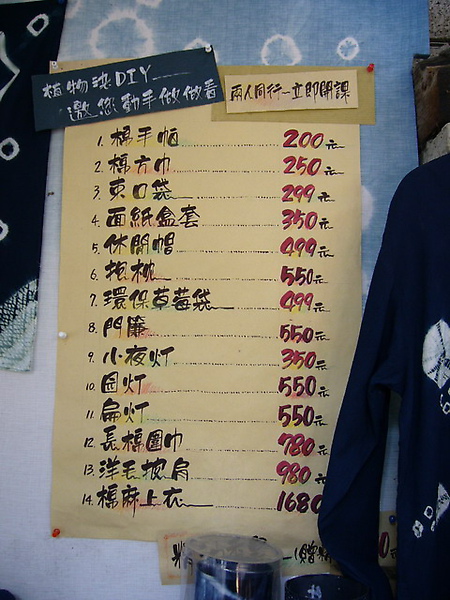 植物染DIY
邀您動手做做看
兩人同行—立即開課
1. 棉手帕 200元
2. 棉方巾 250元
3. 束口袋 299元
4. 面紙盒套 350元
5. 休閒帽 499元
6. 抱枕 550元
7. 環保草莓袋 499元
8. 門簾 550元
9. 小夜灯 350元
10. 圆灯 550元
11. 扁灯 550元
12. 長棉圍巾 780元
13. 洋毛披肩 980元
14. 棉麻上衣 1680